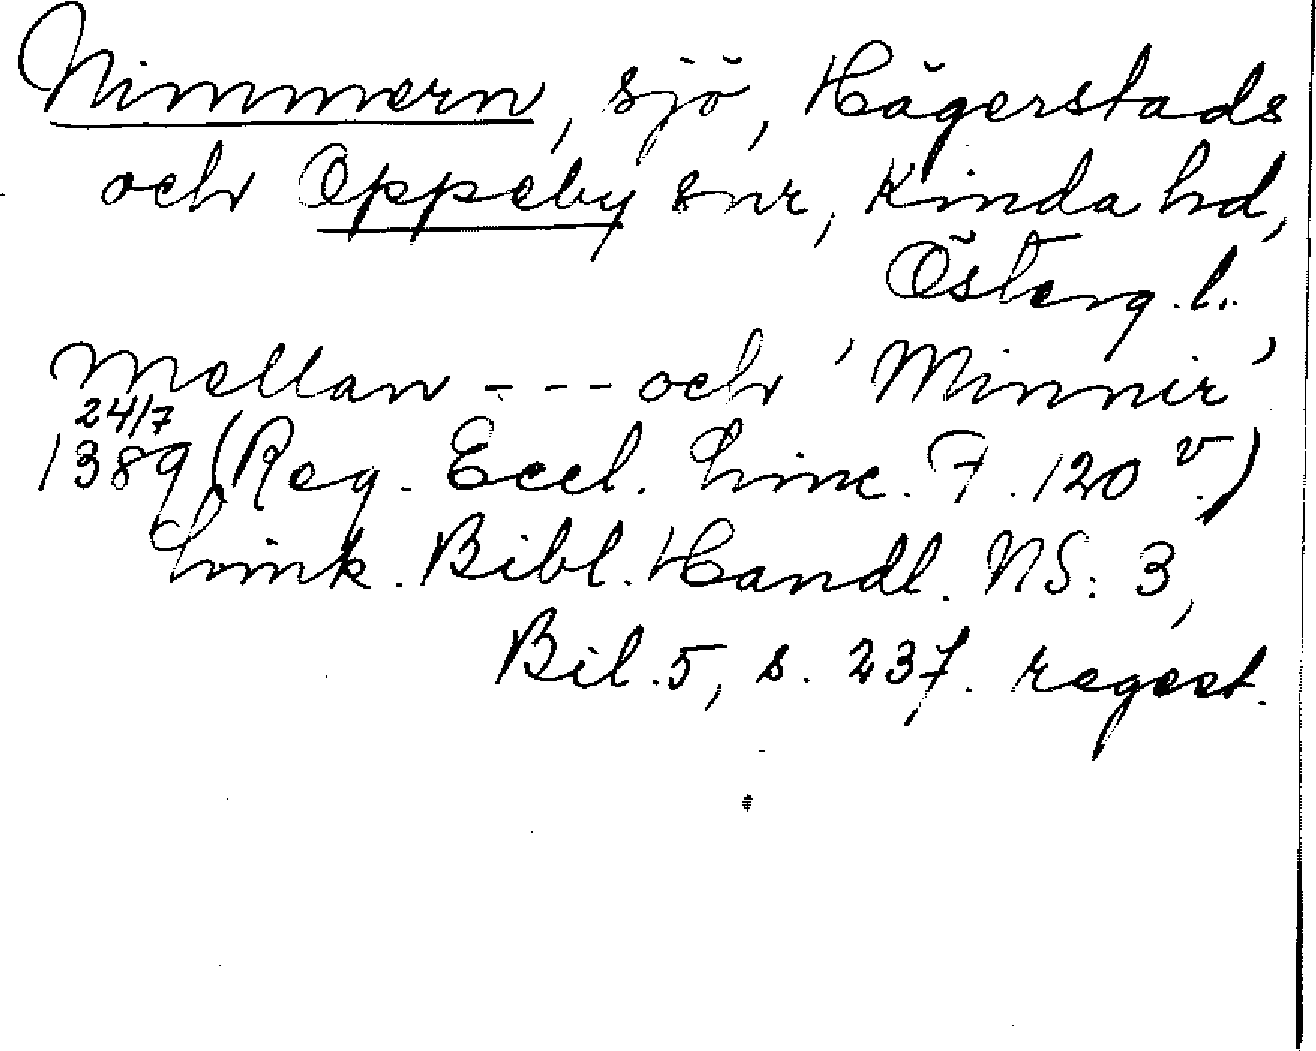 Nimmern, sjö, Hägerstads
och Oppeby snr, Kinda hd,
Österg. l.
Mellan --- och 'Minnir'
24/7
1389 (Reg. Eccl. Linc. F. 120 v.)
Link. Bibl. Handl. NS: 3,
Bil. 5, s. 237. regest.